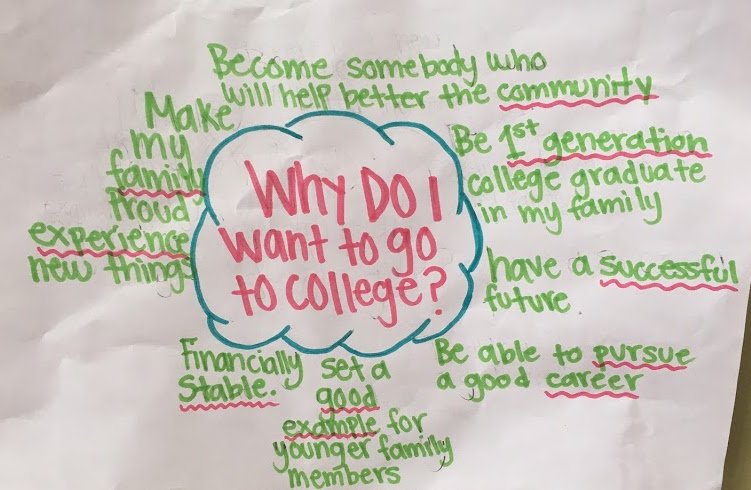 Why Do I
want to go
to college?
Become somebody who
will help better the community
Be 1st generation
college graduate
in my family
have a successful
future
Be able to pursue
a good career
set a
good
example for
younger family
members
Financially
Stable.
Make
my
family
Proud
experience
new things